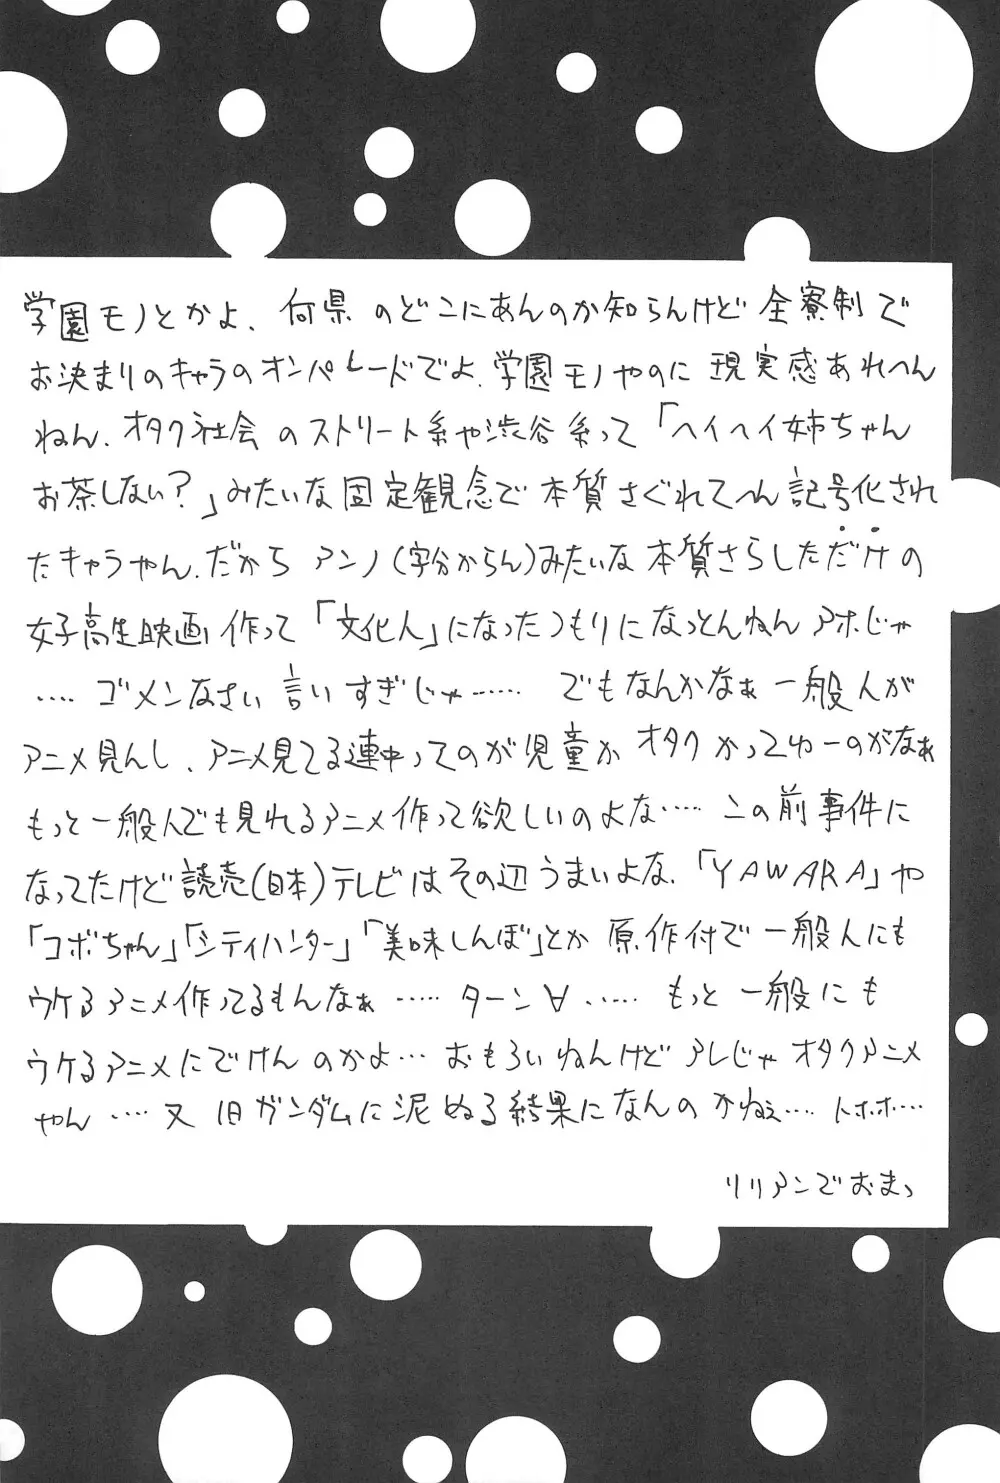 学園モノとかよ、何県のどこにあんのか知らんけど全寮制で
お決まりのキャラのオンパレードでよ、学園モノやのに現実感あれへん
ねん、オタク社会のストリート系や渋谷系って「ヘイヘイ姉ちゃん
お茶しない？」みたいな固定観念で本質さぐれてへん記号化され
たキャラやん、だからアンノ（字分からん）みたいな本質さらしただけの
女子高生映画作って「文化人」になったつもりになっとんねんアホじゃ
‥‥ゴメンなさい言いすぎじゃ‥‥‥でもなんかなぁ一般人が
アニメ見んし、アニメ見てる連中ってのが児童かオタクかってゆーのがなぁ
もっと一般人でも見れるアニメ作って欲しいのよな‥‥この前事件に
なってたけど読売（日本）テレビはその辺うまいよな、「YAWARA」や
「コボちゃん」「シティハンター」「美味しんぼ」とか原作付で一般人にも
ウケるアニメ作ってるもんなぁ‥‥‥ターン∀‥‥‥もっと一般にも
ウケるアニメにでけんのかよ‥‥おもろいねんけどアレじゃオタクアニメ
やん‥‥又旧ガンダムに泥ぬる結果になんのかねぇ‥‥トホホ‥‥
リリアンでおまっ